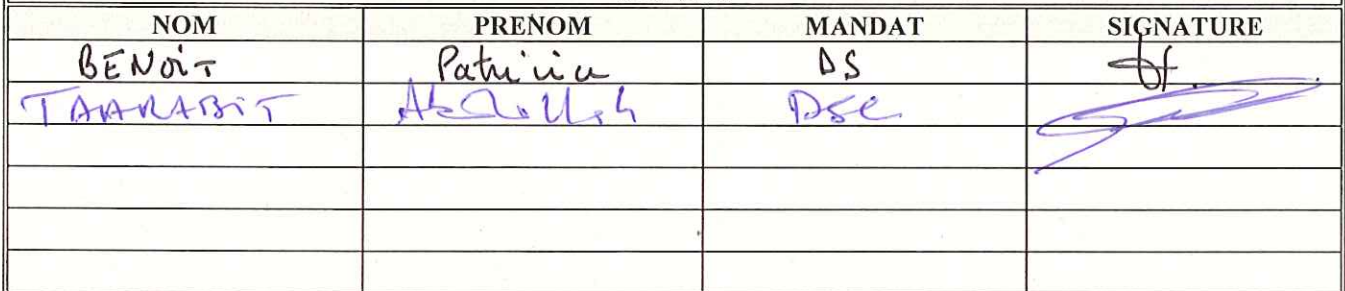 NOM PRENOM MANDAT SIGNATURE
BENOIT Patricia DS
TAARABIT Abdellah DSC